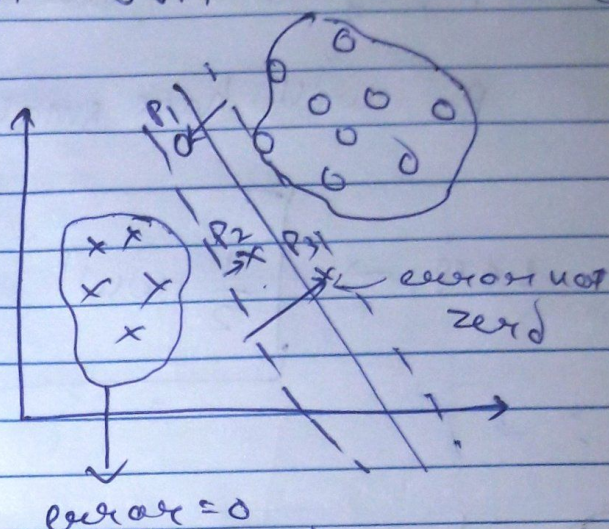 P1
P2
P3
error not
zero
error = 0